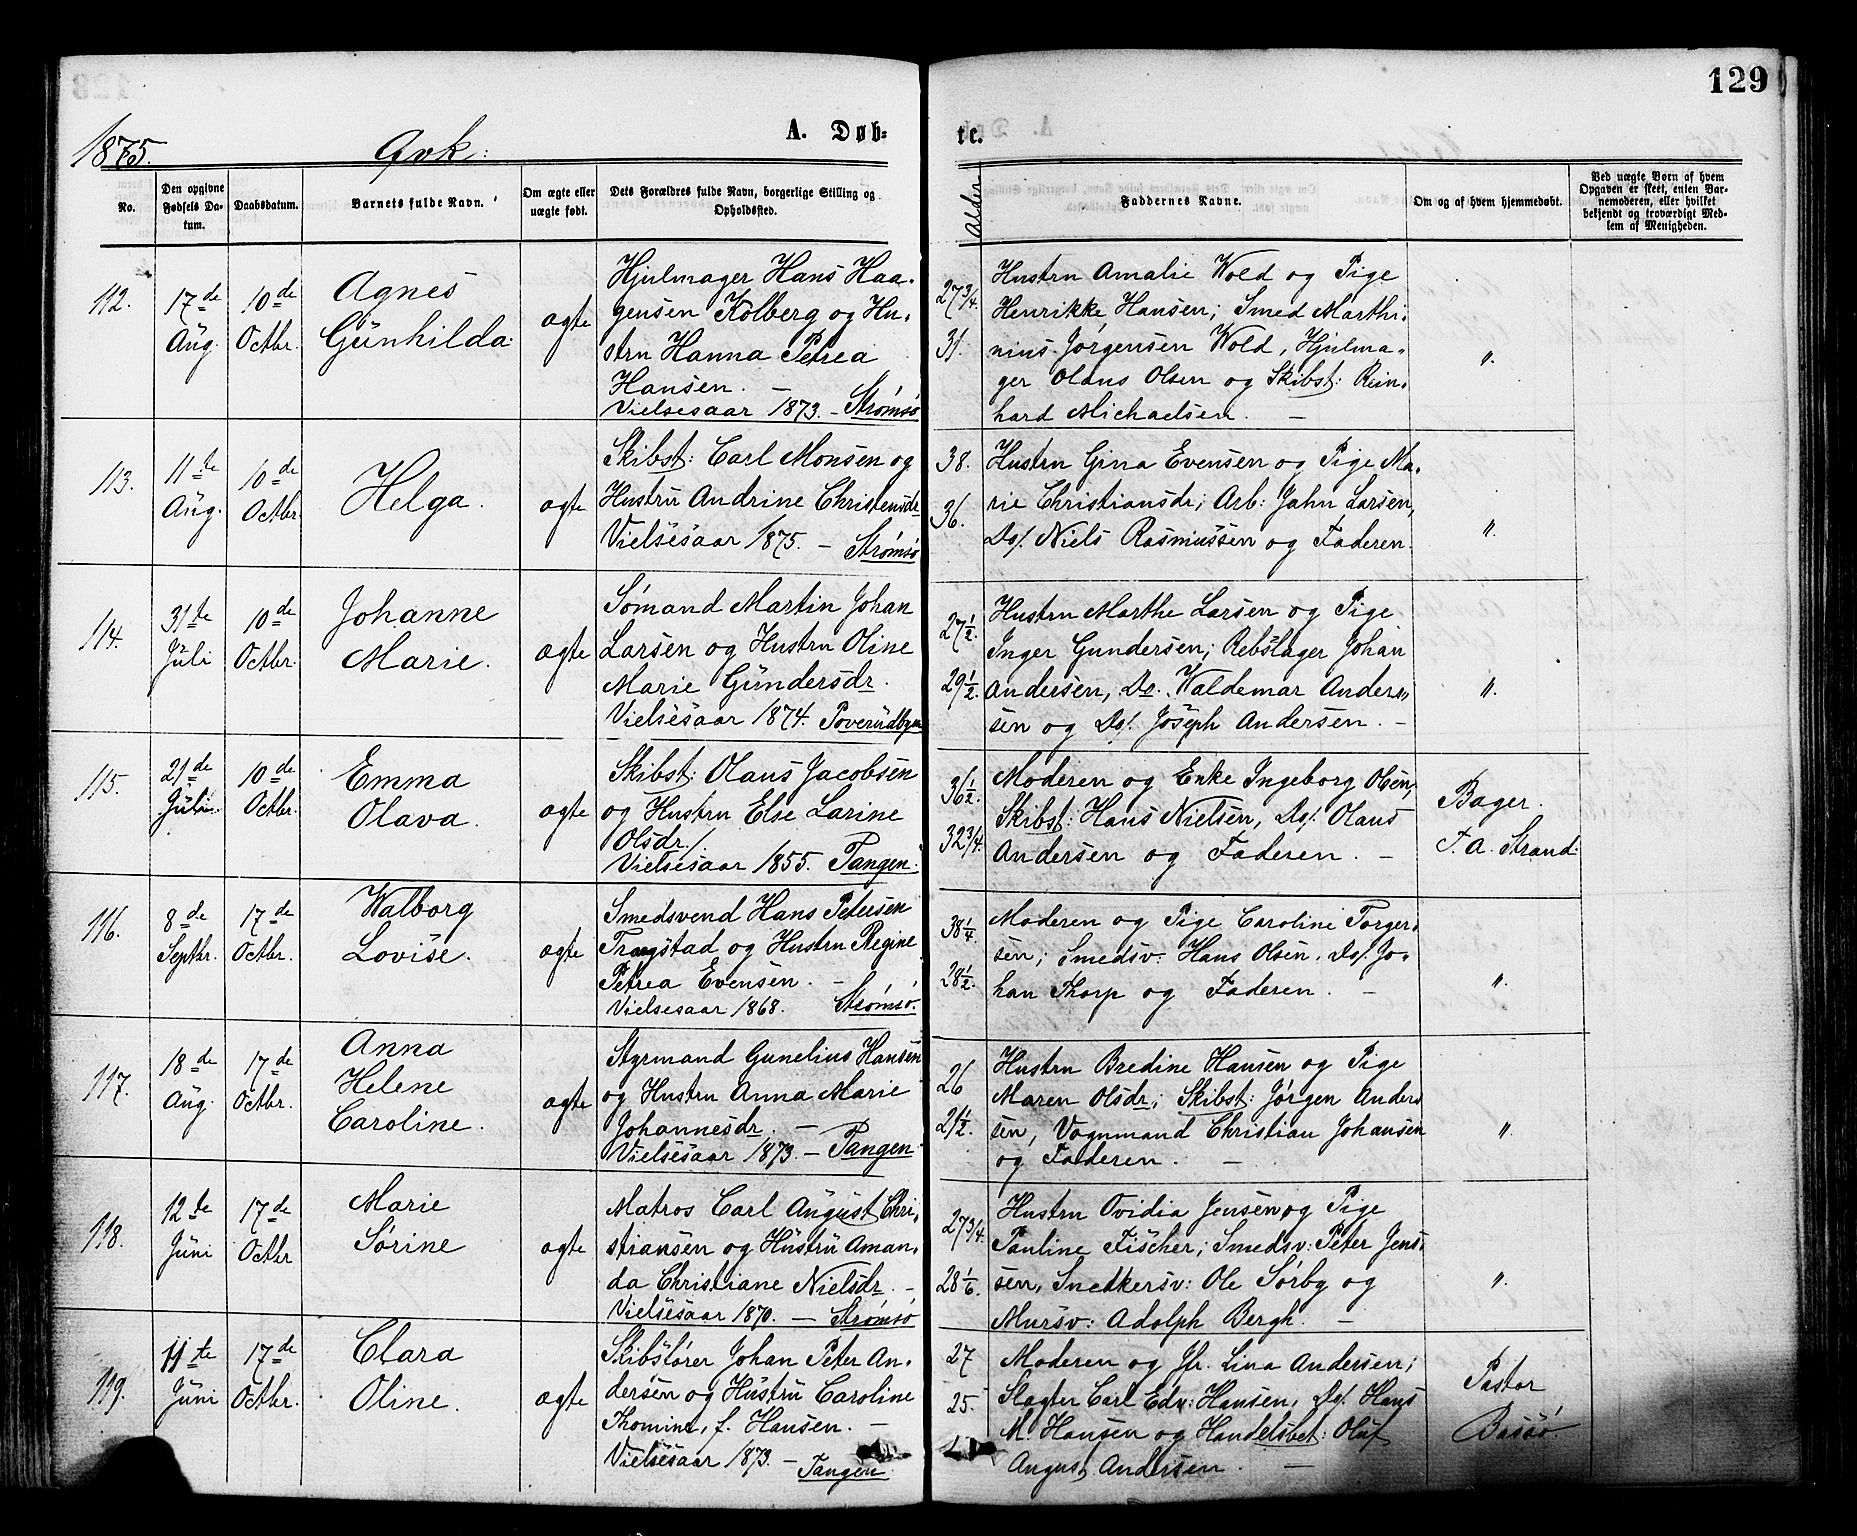 129
1875. Qvk: A. Døb-
te.
No.
Den opgivne Fødsels Da-
tum.
Daabsdatum.
Barnets fulde Navn.
Om ægte eller
uægte født.
Dets Forældres fulde Navn, borgerlige Stilling og
Opholdssted.
Alder
Faddernes Navne.
Om og af hvem hjemmedøbt.
Ved uægte Børn af hvem
Opgaven er skeet, enten Bar-
nemoderen, eller hvilket
bekjendt og troværdigt Med-
lem af Menigheden.
112.
17de
Aug.
10de
Octbr.
Agnes
Gunhilda.
ægte
Hjulmager Hans Haa-
gensen Kolberg og Hu-
stru Hanna Petrea
Hansen. –
Vielsesaar 1873. – Strømsø
27 3/4.
31.
Hustru Amalie Wold og Pige
Henrikke Hansen; Smed Marthi-
nius Jørgensen Wold, Hjulma-
ger Olaus Olsen og Skibst: Rein-
hard Michaelsen. –
"
113.
11te
Aug.
10de
Octbr.
Helga.
ægte
Skibst: Carl Monsen og
Hustru Andrine Christensdr
Vielsesaar 1875. – Strømsø
38.
36.
Hustru Gina Evensen og Pige Ma-
rie Christiansdr; Arb: Jahn Larsen,
Do/. Niels Rasmussen og Faderen.
"
114.
31te
Juli
10de
Octbr.
Johanne
Marie.
ægte
Sømand Martin Johan
Larsen og Hustru Oline
Marie Gundersdr.
Vielsesaar 1874. Toverudbyen
27 1/2.
29 1/2.
Hustru Marthe Larsen og Pige
Inger Gundersen; Rebslager Johan
Andersen, Do. Waldemar Anders-
sen og Do/. Joseph Andersen. –
"
115.
21de
Juli
10de
Octbr.
Emma
Olava.
ægte
Skibst: Olaus Jacobsen
og Hustru Else Larine
Olsdr./.
Vielsesaar 1855. Tangen.
36 1/2.
32 3/4.
Moderen og Enke Ingeborg Olsen,
Skibst: Hans Nielsen, Do/. Olaus
Andersen og Faderen. –
Bager.
F. A. Strand.
116.
8de
Septbr.
17de
Octbr.
Walborg
Lovise.
ægte
Smedsvend Hans Petersen
Trøgstad og Hustru Regine
Petrea Evensen. –
Vielsesaar 1868. Strømsø.
38 1/4
28 1/2.
Moderen og Pige Caroline Torger-
sen; Smedsv: Hans Olsen, Do/. Jo-
han Thorp og Faderen. –
"
117.
18de
Aug.
17de
Octbr.
Anna
Helene
Caroline.
ægte
Styrmand Gunelius Hansen
og Hustru Anna Marie
Johannesdr. –
Vielsesaar 1873. – Tangen.
26
21 1/2.
Hustru Bredine Hansen og Pige
Maren Olsdr; Skibst: Jørgen Anders-
sen, Vognmand Christian Johansen
og Faderen. –
"
118.
12te
Juni
17de
Octbr
Marie
Sørine
ægte
Matros Carl August Chri-
stiansen og Hustru Aman-
da Christiane Nielsdr. –
Vielsesaar 1870. – Strømsø
27 3/4.
28 1/6.
Hustru Ovidia Jensen og Pige
Pauline Fischer; Smedsv: Peter Jens-
sen, Snedkersv: Ole Sørby og
Mursv: Adolph Bergh. –
"
119.
11te
Juni
17de
Octbr.
Clara
Oline.
ægte
Skibsfører Johan Peter An-
dersen og Hustru Caroline
Thomine, f. Hansen. –
Vielsesaar 1873. – Tangen
27
25.
Moderen og Jfr. Lina Andersen;
Slagter Carl Edv: Hansen, Do/. Hans
M. Hansen og Handelsbet: Oluf
August Andersen. –
Pastor
Bassø.